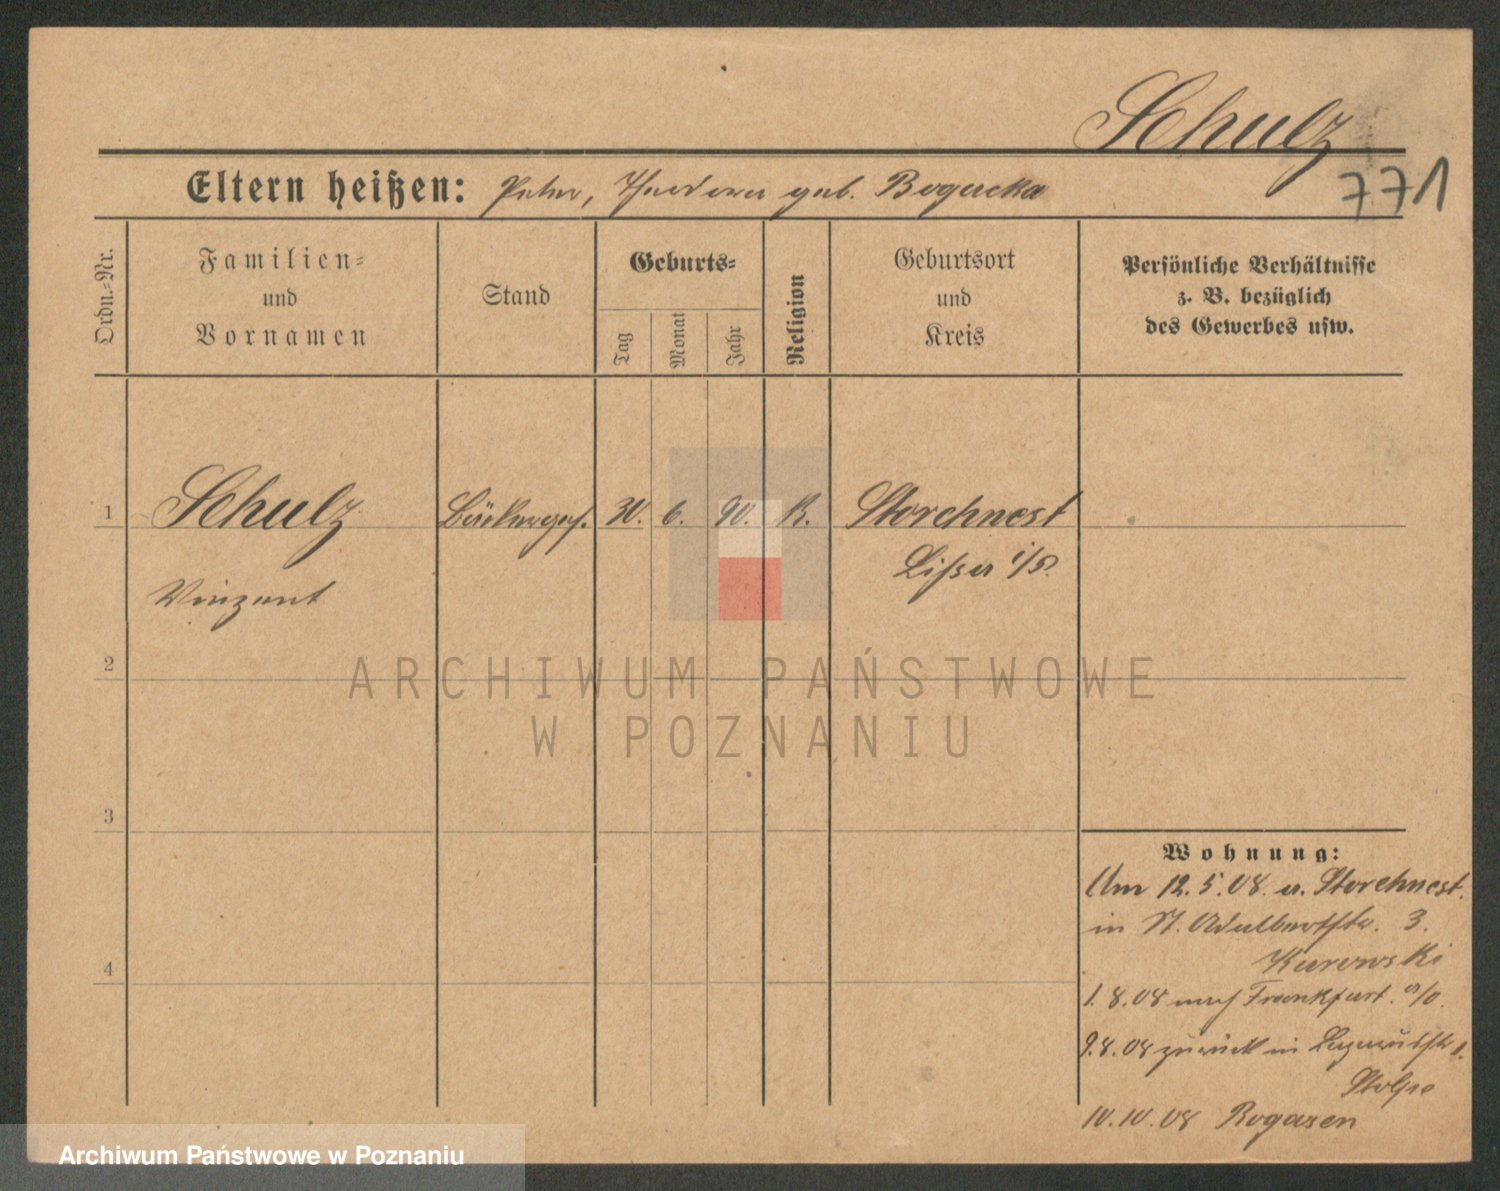 Schulz
771
Eltern heißen: Peter, Theodora geb. Bogacka
Ordn.-Nr.
Familien-
und
Vornamen
Stand
Geburts-
Tag
Monat
Jahr
Religion
Geburtsort
und
Kreis
Persönliche Verhältnisse
z. B. bezüglich
des Gewerbes usw.
1
Schulz
Bäckerges.
30. 6. 90. K.
Storchnest
Lissa i/P.
Vinzent
2
ARCHIWUM PAŃSTWOWE
W POZNANIU
3
4
Wohnung:
Am 12.5.08. a. Storchnest.
in St. Adalbertstr. 3.
Kurowski
1.8.08 nach Frankfurt. a/O.
9.8.08 zurück in
10.10.08 Rogasen
Archiwum Państwowe w Poznaniu